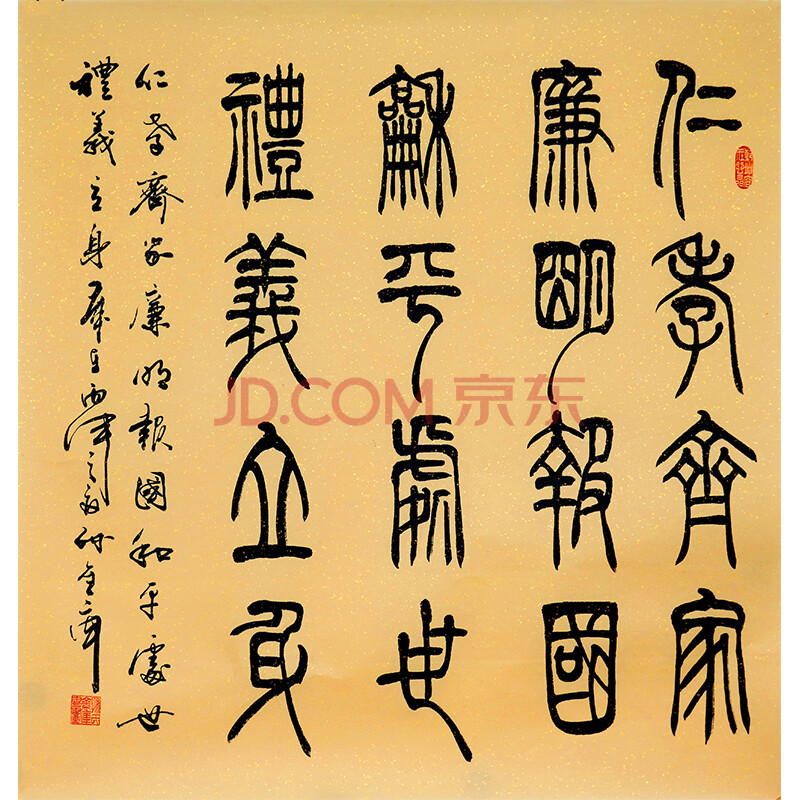 仁孝齊家
廉明報國
龢平處世
禮義立身
仁孝齊家廉明報國和平處世
禮義立身
JD.COM 京东